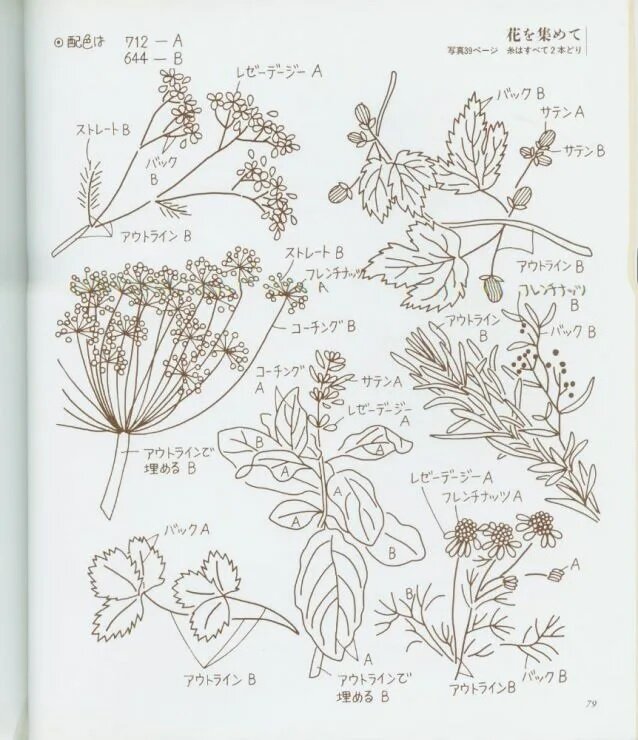 花を集めて
写真39ページ 糸はすべて2本どり
⦿配色は 712 — A
644 — B
レゼーデージー A
ストレート B
バック
B
アウトライン B
バック B
サテン A
サテン B
アウトライン B
フレンチナッツ
B
ストレート B
フレンチナッツ
A
コーチング B
アウトラインで
埋める B
コーチング
A
サテン A
レゼーデージー
A
B
A
A
A
A
B
A
アウトラインで
埋める B
アウトライン
B
バック B
レゼーデージー A
フレンチナッツ A
A
B
バック B
アウトライン B
バック A
アウトライン B
79